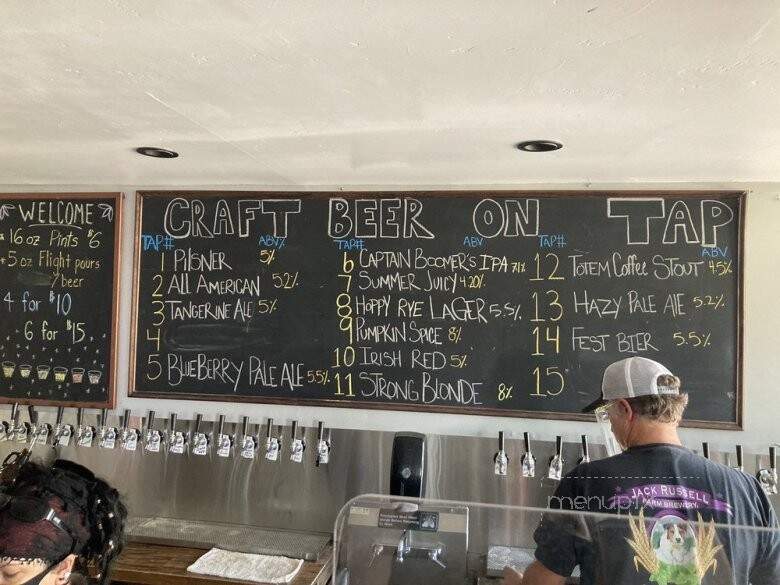 WELCOME
16 oz Pints $6
5 oz Flight pours
/beer
4 for $10
6 for $15
CRAFT BEER ON TAP
TAP# ABV%
1 PILSNER 5%
2 ALL AMERICAN 5.2%
3 TANGERINE ALE 5%
4
5 BLUEBERRY PALE ALE 5.5%
TAP# ABV
6 CAPTAIN BOOMER'S IPA 7.1%
7 SUMMER JUICY 4.20%
8 HOPPY RYE LAGER 5.5%
9 PUMPKIN SPICE 8%
10 IRISH RED 5%
11 STRONG BLONDE 8%
TAP# ABV
12 TOTEM Coffee STOUT 4.5%
13 HAZY PALE ALE 5.2%
14 FEST BIER 5.5%
15
JACK RUSSELL
FARM BREWERY